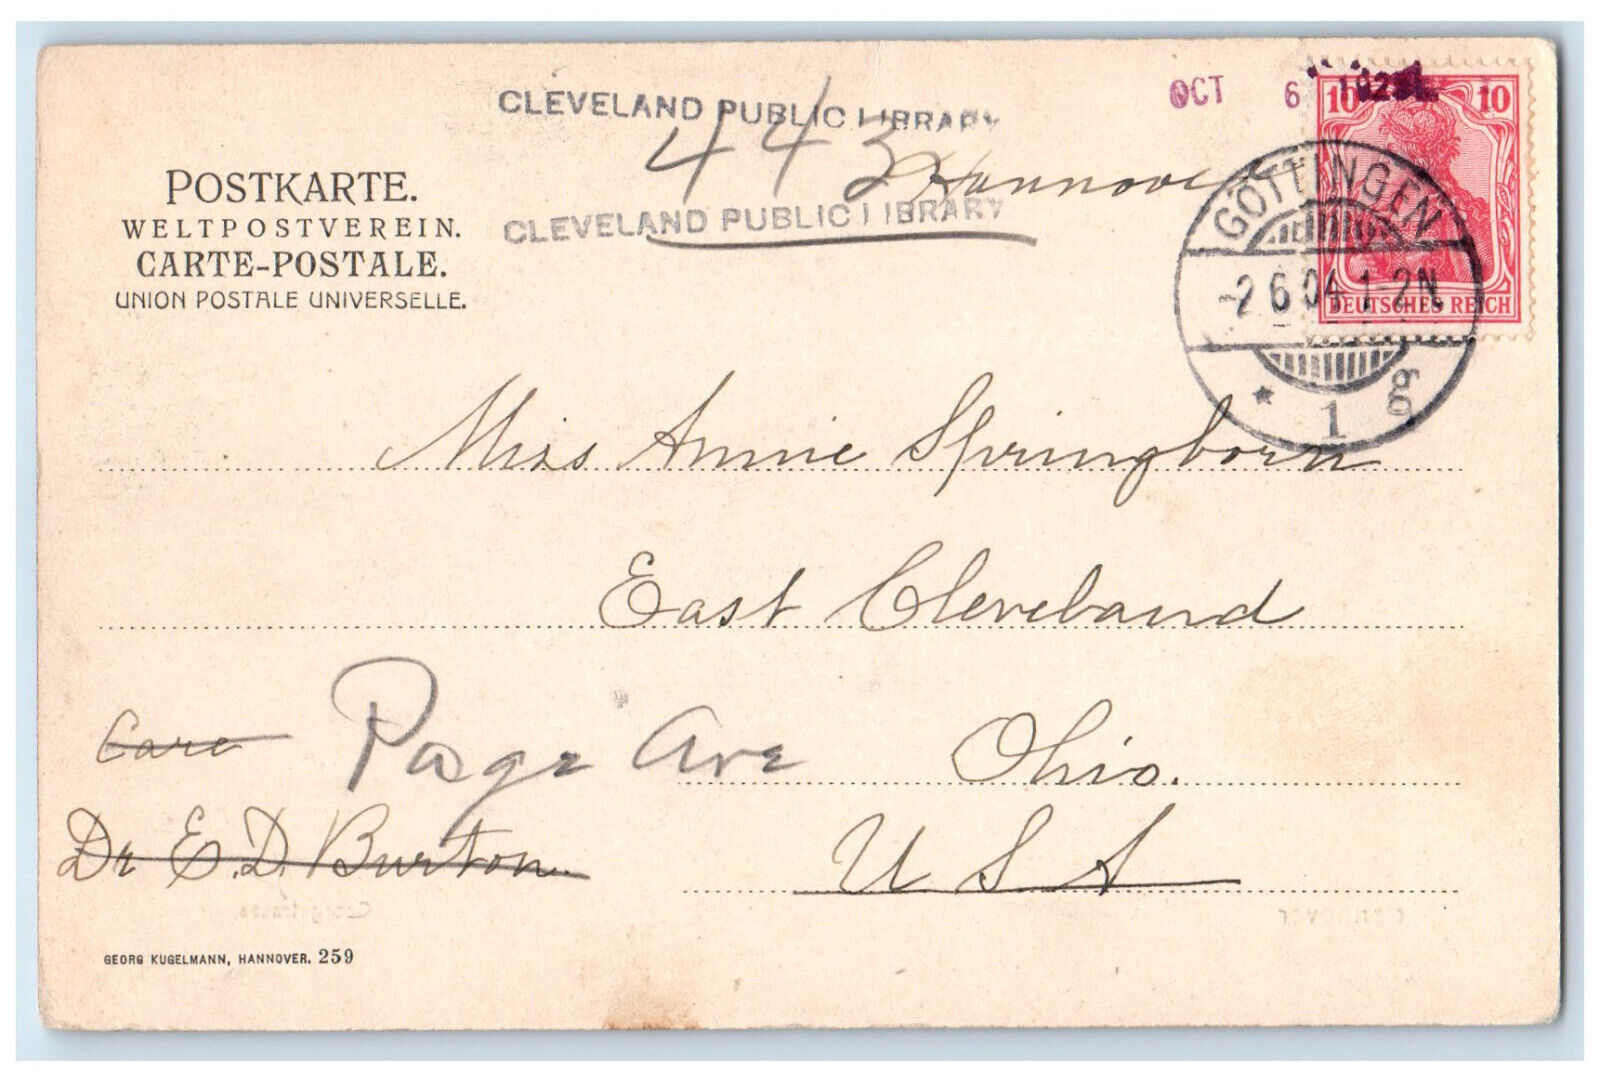 CLEVELAND PUBLIC LIBRARY
OCT 6
443 Hannover
CLEVELAND PUBLIC LIBRARY
10 10
DEUTSCHES REICH
GÖTTINGEN
-2 6 04 1-2N
* 1 g
POSTKARTE.
WELTPOSTVEREIN.
CARTE-POSTALE.
UNION POSTALE UNIVERSELLE.
Miss Annie Springborn
East Cleveland
Care Page Ave Ohio.
Dr E. D. Burton. U S A
Georgstrasse. Hannover
GEORG KUGELMANN, HANNOVER. 259